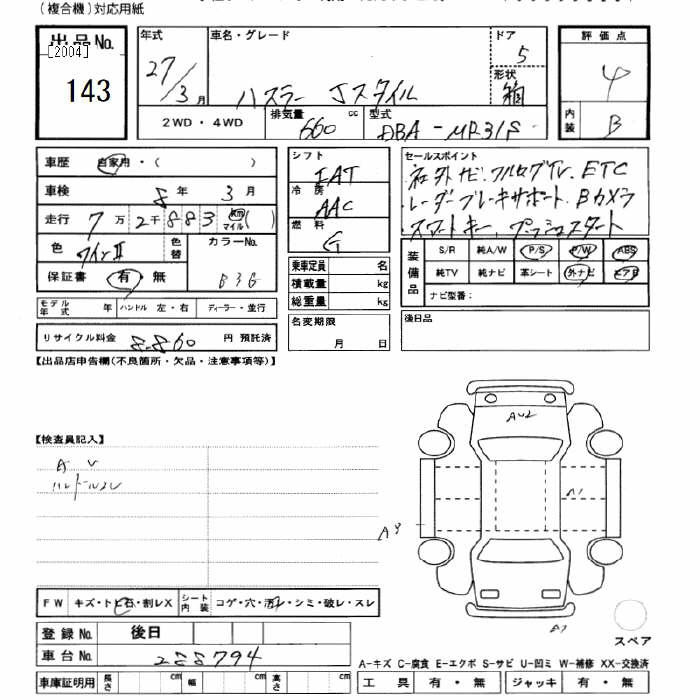 (複合機)対応用紙
出品No.
[2004]
143
年式
27/3月
車名・グレード
ハスラー Jスタイル
ドア
5
形状
箱
評価点
4
内装
B
2WD・4WD
排気量
660 cc
型式
DBA-MR31S
車歴
自家用・( )
車検
8年 3月
走行
7万2千883 Km マイル( )
色
ワインⅡ
色替
カラーNo.
B3G
保証書
有・無
モデル年式 年
ハンドル 左・右
ディーラー・並行
リサイクル料金
8.860 円 預託済
シフト
IAT
冷房
AAC
燃料
G
乗車定員 名
積載量 kg
総重量 kg
名変期限
月 日
セールスポイント
社外ナビ.フルセグTV.ETC
レーダーブレーキサポート.Bカメラ
スマートキー.プッシュスタート
装備品
S/R 純A/W P/S P/W ABS
純TV 純ナビ 革シート 外ナビ エアB
ナビ型番:
後日品
【出品店申告欄(不良箇所・欠品・注意事項等)】
【検査員記入】
A U
ハンドルスレ
AU2
A1
FW キズ・トビ石・割レX
シート内装 コゲ・穴・汚レ・シミ・破レ・スレ
登録No. 後日
車台No. 288794
車庫証明用 長さ cm 幅 cm 高さ cm
スペア
A-キズ C-腐食 E-エクボ S-サビ U-凹ミ W-補修 XX-交換済
工具 有・無 ジャッキ 有・無